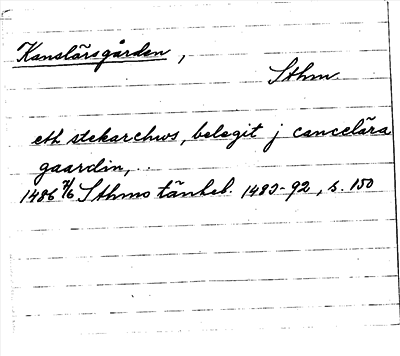 Kanslärsgården,
Sthm.
ett stekarehws, belegit j cancelära
gaardin, ..
1486 7/6 Sthms tänkeb. 1483-92, s. 150